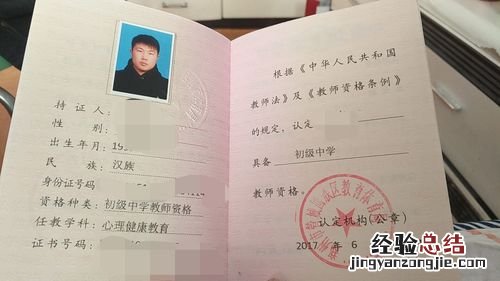 持证人
性别
出生年月 19
民族 汉族
身份证号码
资格种类 初级中学教师资格
任教学科 心理健康教育
证书号码
根据《中华人民共和国
教师法》及《教师资格条例》
的规定，认定
具备 初级中学
教师资格。
认定机构(公章)
2017 年 6
经验总结
jingyanzongjie.com